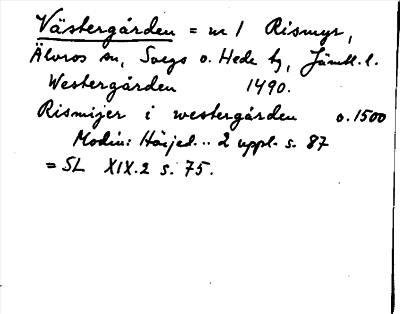 Västergården = nr 1 Rismyr,
Älvros sn, Svegs o. Hede tg, Jämtl. l.
Westergården 1490.
Rismijer i westergården o. 1500
Modin: Härjed... 2 uppl. s. 87
= SL XIX.2 s. 75.